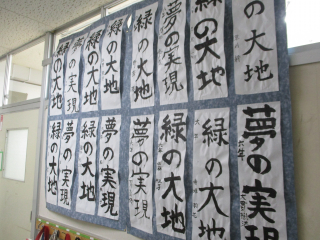 緑の大地
夢の実現
緑の大地
緑の大地
緑の大地
夢の実現
緑の大地
の大地
緑の大地
夢の実現
緑の大地
夢の実現
夢の実現
緑の大地
緑の大地
夢の実現
六年